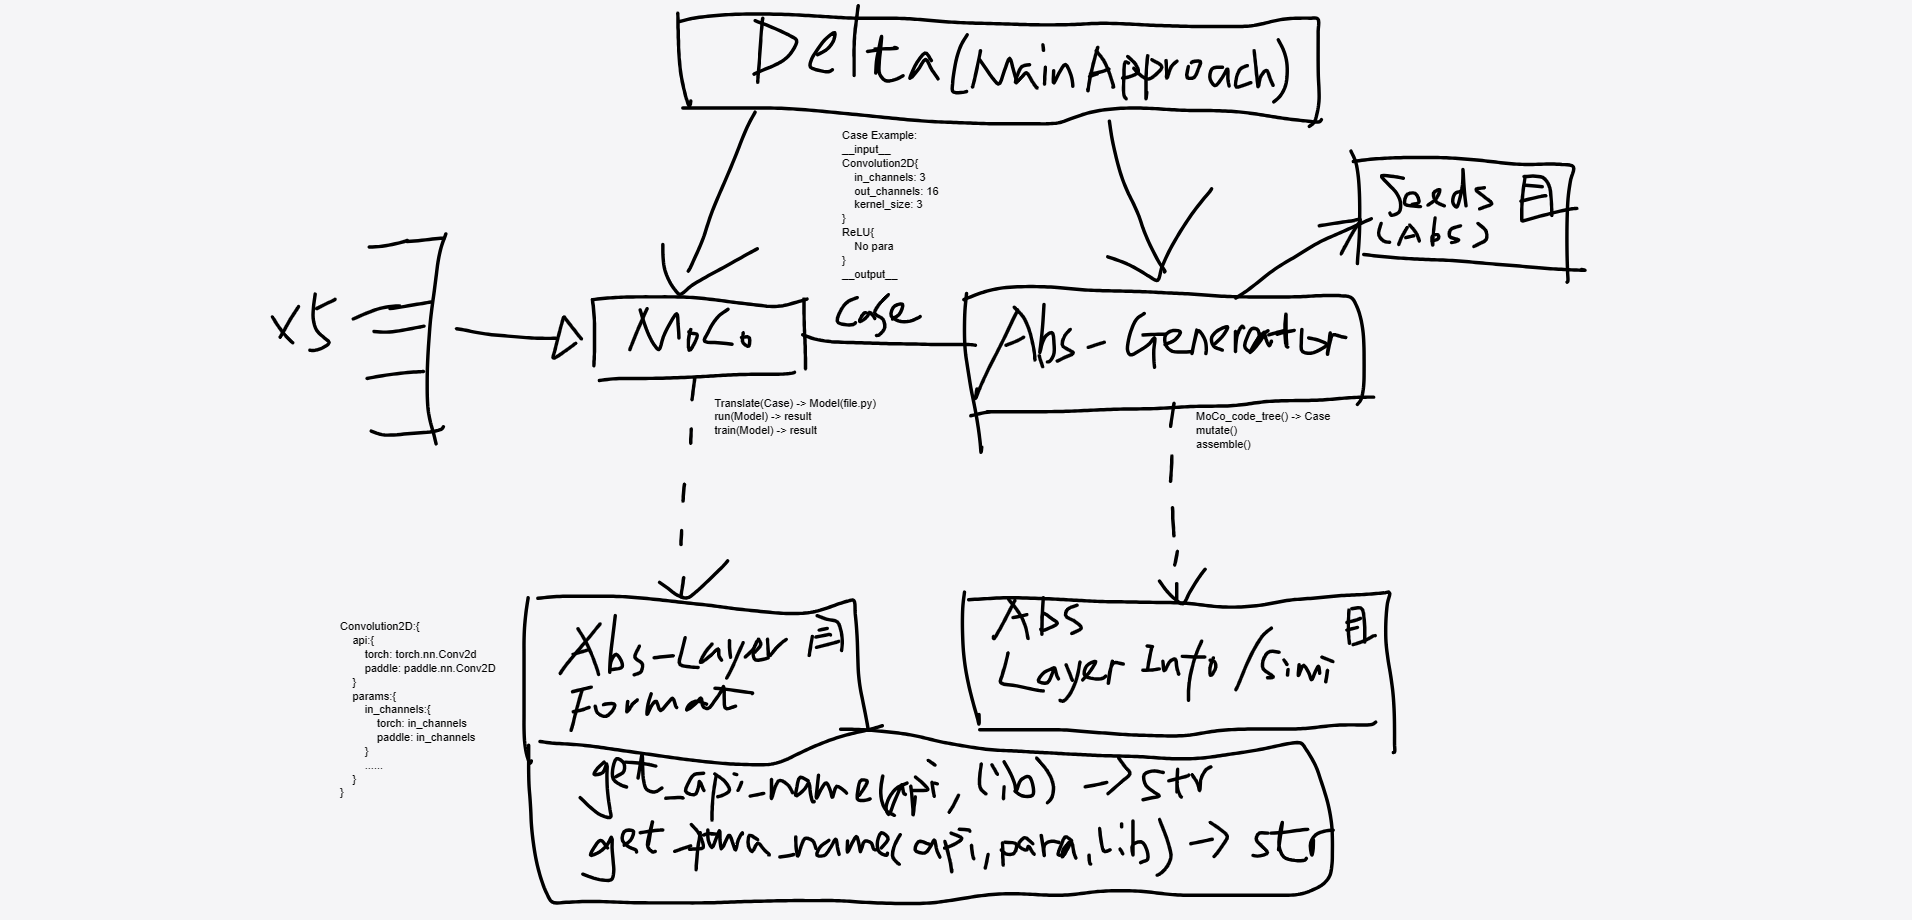 Delta(MainApproach)
Case Example:
__input__
Convolution2D{
in_channels: 3
out_channels: 16
kernel_size: 3
}
ReLU{
No para
}
__output__
Seeds
(Abs)
x5
MoCo
Case
Abs-Generator
Translate(Case) -> Model(file.py)
run(Model) -> result
train(Model) -> result
MoCo_code_tree() -> Case
mutate()
assemble()
Convolution2D:{
api:{
torch: torch.nn.Conv2d
paddle: paddle.nn.Conv2D
}
params:{
in_channels:{
torch: in_channels
paddle: in_channels
}
......
}
}
Abs-Layer
Format
Abs
Layer Info/Simi
get_api_name(api, lib) -> str
get_para_name(api, para, lib) -> str